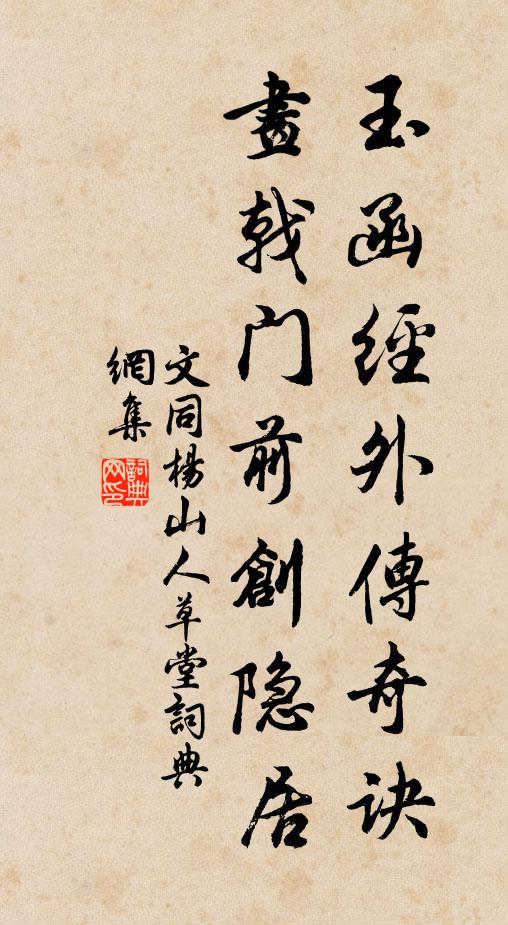 玉函經外傳奇訣
畫戟門前創隐居
文同楊山人草堂詞典
網集
詞典
网印